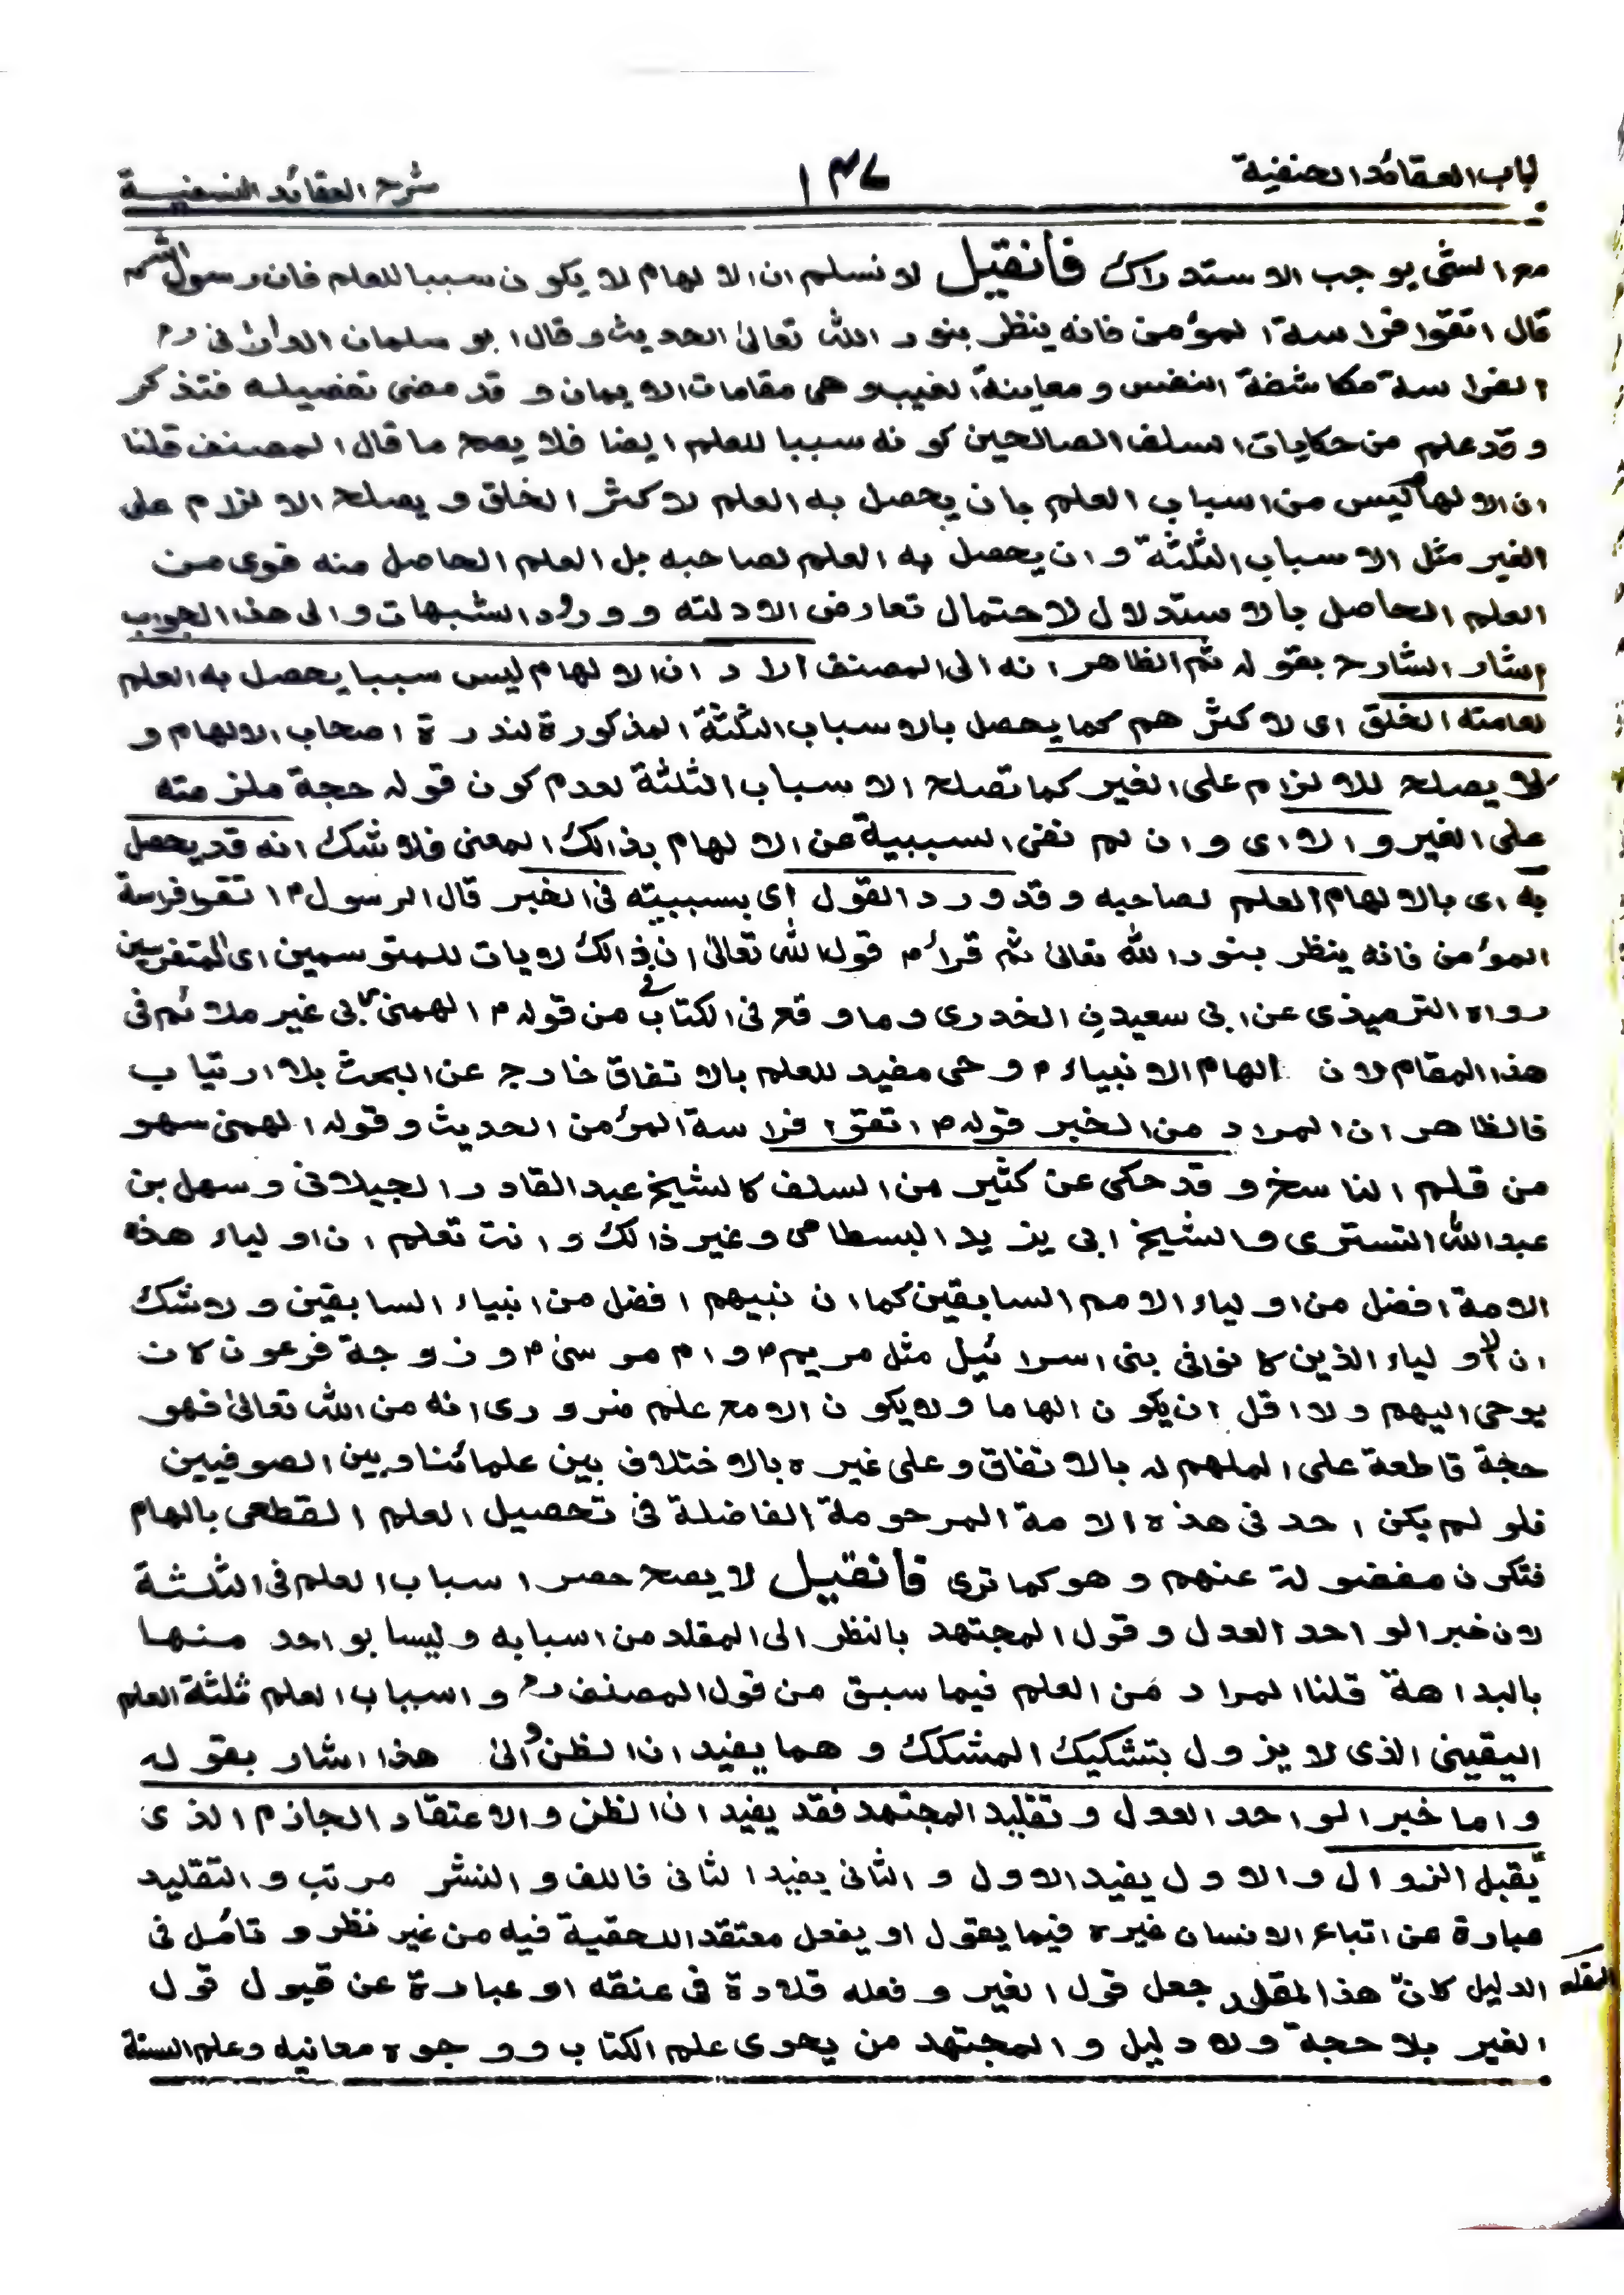 لباب العقائد الحنفية
١٣٧
شرح العقائد النسفية
مع الشئ يوجب الاستدراك فان قيل لا نسلم ان الالهام لا يكون سببا للعلم فان رسول الله
قال اتقوا فراسة المؤمن فانه ينظر بنور الله تعالىٰ الحديث وقال ابو سلمان الدارانى رح
الفراسة مكاشفة النفس ومعاينة الغيب وهى مقامات الايمان وقد مضى تفضيله فتذكر
وقد علم من حكايات السلف الصالحين كونه سببا للعلم ايضا فلا يصح ما قال المصنف قلنا
ان الالهام ليس من اسباب العلم بان يحصل به العلم لاكثر الخلق ويصلح الالزام على
الغير مثل الاسباب الثلثة وان يحصل به العلم لصاحبه بل العلم الحاصل منه قوى من
العلم الحاصل بالاستدلال لاحتمال تعارض الادلته وورود الشبهات والى هذا الجواب
اشار الشارح بقوله ثم الظاهر انه اى المصنف اراد ان الالهام ليس سببا يحصل به العلم
لعامته الخلق اى لاكثرهم كما يحصل بالاسباب الثلثة المذكورة لندرة اصحاب الالهام و
لا يصلح للالزام على الغير كما تصلح الاسباب الثلثة لعدم كون قوله حجة ملزمته
على الغير والا اى وان لم نفى السببية عن الالهام بذالك المعنى فلا شك انه قد يحصل
به اى بالالهام العلم لصاحبه وقد ورد القول اى بسببيته فى الخبر قال الرسول م اتقوا فراسة
المؤمن فانه ينظر بنور الله تعالىٰ ثم قرأ م قوله لله تعالىٰ ان فى ذالك لايات للمتوسمين اى المتفرسين
رواه الترميذى عن ابى سعيدن الخدرى وما وقع فى الكتاب من قوله م الهمنى ربى غير ملائم فى
هذا المقام لان الهام الانبياء م وحى مفيد للعلم بالاتفاق خارج عن البحث بلا ارتياب
فالظاهر ان المراد من الخبر قوله م اتقوا فراسة المؤمن الحديث وقوله الهمنى سهو
من قلم الناسخ وقد حكى عن كثير من السلف كالشيخ عبد القادر الجيلانى وسهل بن
عبد الله التسترى والشيخ ابى يزيد البسطامى وغير ذالك وانت تعلم ان اولياء هذه
الامة افضل من اولياء الامم السابقين كما ان نبيهم افضل من انبياء السابقين ولا شك
ان الاولياء الذين كانوا فى بنى اسرائيل مثل مريم م وام موسىٰ م وزوجة فرعون كان
يوحى اليهم ولا اقل ان يكون الهاما ولا يكون الا مع علم ضرورى انه من الله تعالىٰ فهو
حجة قاطعة على الملهم له بالاتفاق وعلى غيره بالاختلاف بين علمائنا وبين الصوفيين
فلو لم يكن احد فى هذه الامة المرحومة الفاضلة فى تحصيل العلم القطعى بالهام
فتكون مفضولة عنهم وهو كما ترى فان قيل لا يصح حصر اسباب العلم فى الثلثة
لان خبر الواحد العدل وقول المجتهد بالنظر الى المقلد من اسبابه وليسا بواحد منها
بالبداهة قلنا المراد من العلم فيما سبق من قول المصنف رح واسباب العلم ثلثة العلم
اليقينى الذى لا يزول بتشكيك المشكك وهما يفيدان الظن والىٰ هذا اشار بقوله
واما خبر الواحد العدل وتقليد المجتهد فقد يفيدان الظن والاعتقاد الجازم الذى
يقبل الزوال والاول يفيد الاول والثانى يفيد الثانى فاللف والنشر مرتب والتقليد
عبارة عن اتباع الانسان غيره فيما يقول او يفعل معتقدا للحقية فيه من غير نظر و تامُل فى
الدليل كانّ هذا المقلد جعل قول الغير وفعله قلادة فى عنقه او عبارة عن قبول قول
المقلد
الغير بلا حجة ولا دليل والمجتهد من يحوى علم الكتاب ووجوه معانيه وعلم السنة